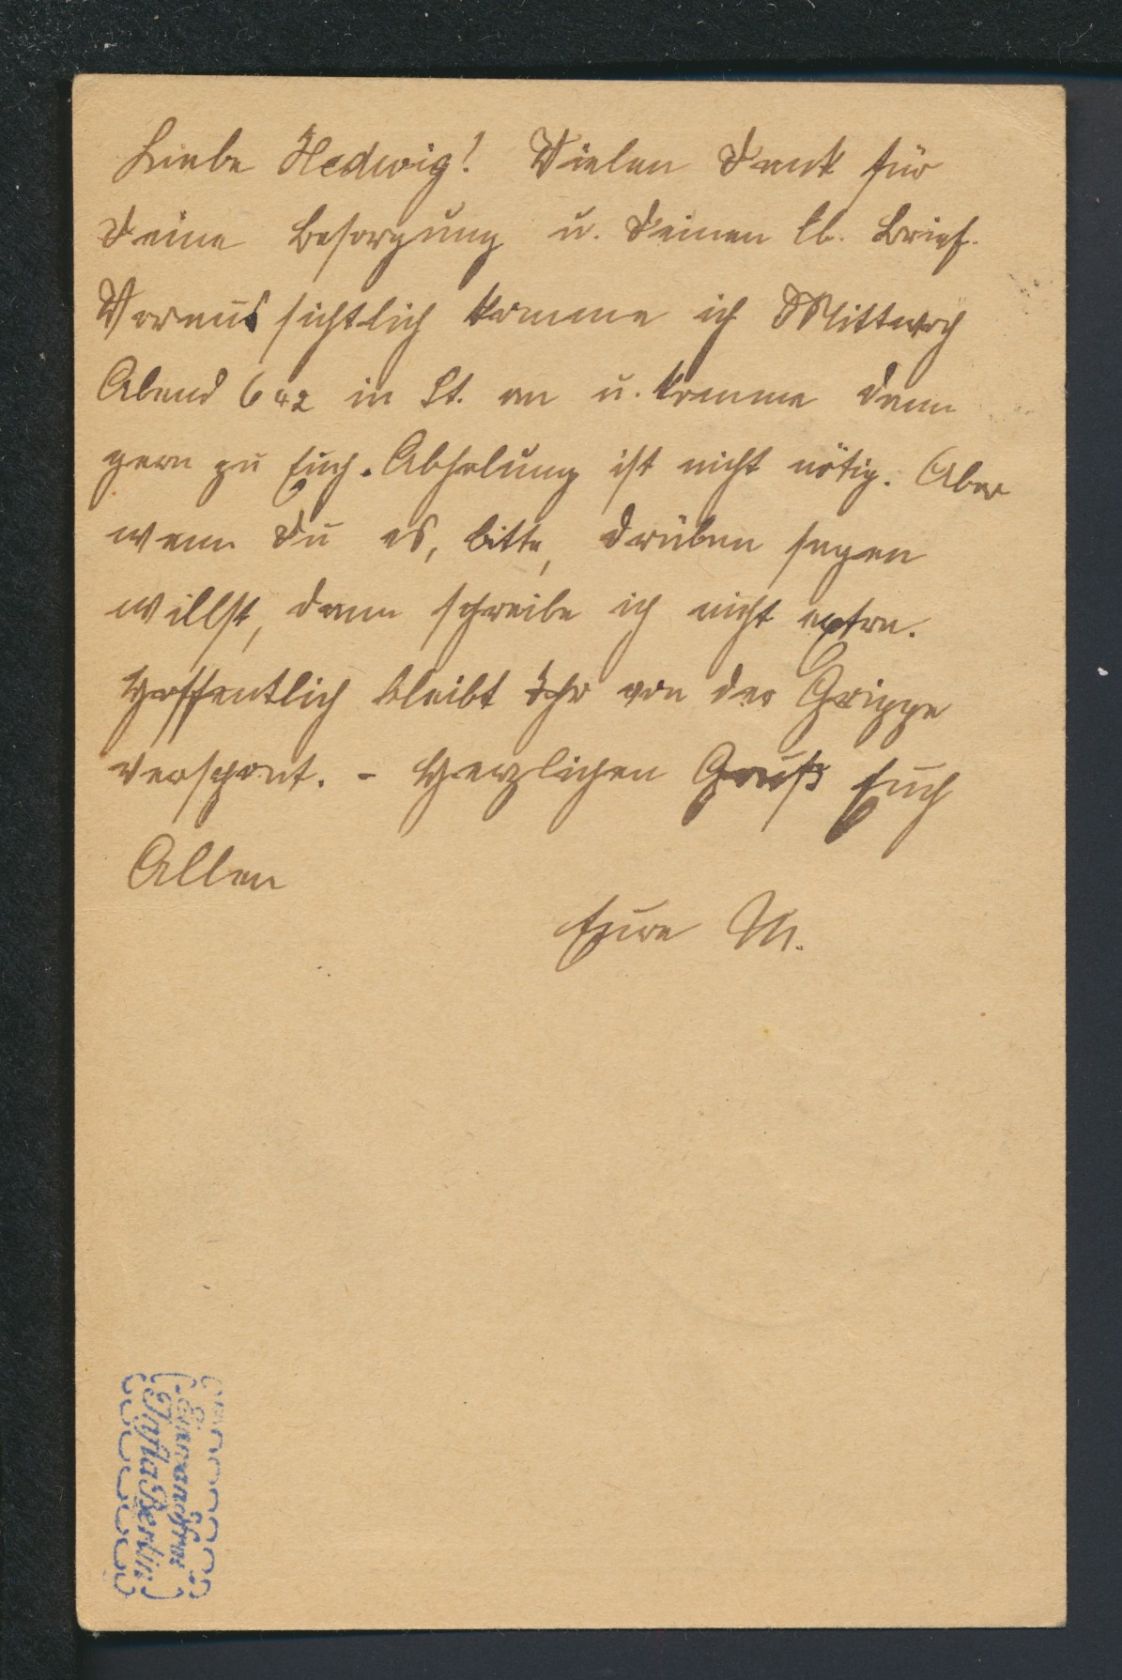 Liebe Hedwig! Vielen Dank für
Deine Besorgung u. Deinen lb. Brief.
Voraussichtlich komme ich Mittwoch
Abend 6 42 in St. an u. komme dann
gern zu Euch. Abholung ist nicht nötig. Aber
wenn Du es, bitte, drüben sagen
willst, dann schreibe ich nicht extra.
Hoffentlich bleibt Ihr von der Grippe
verschont. - Herzlichen Gruß Euch
Allen
Eure M.
Einwandfrei
Berlin